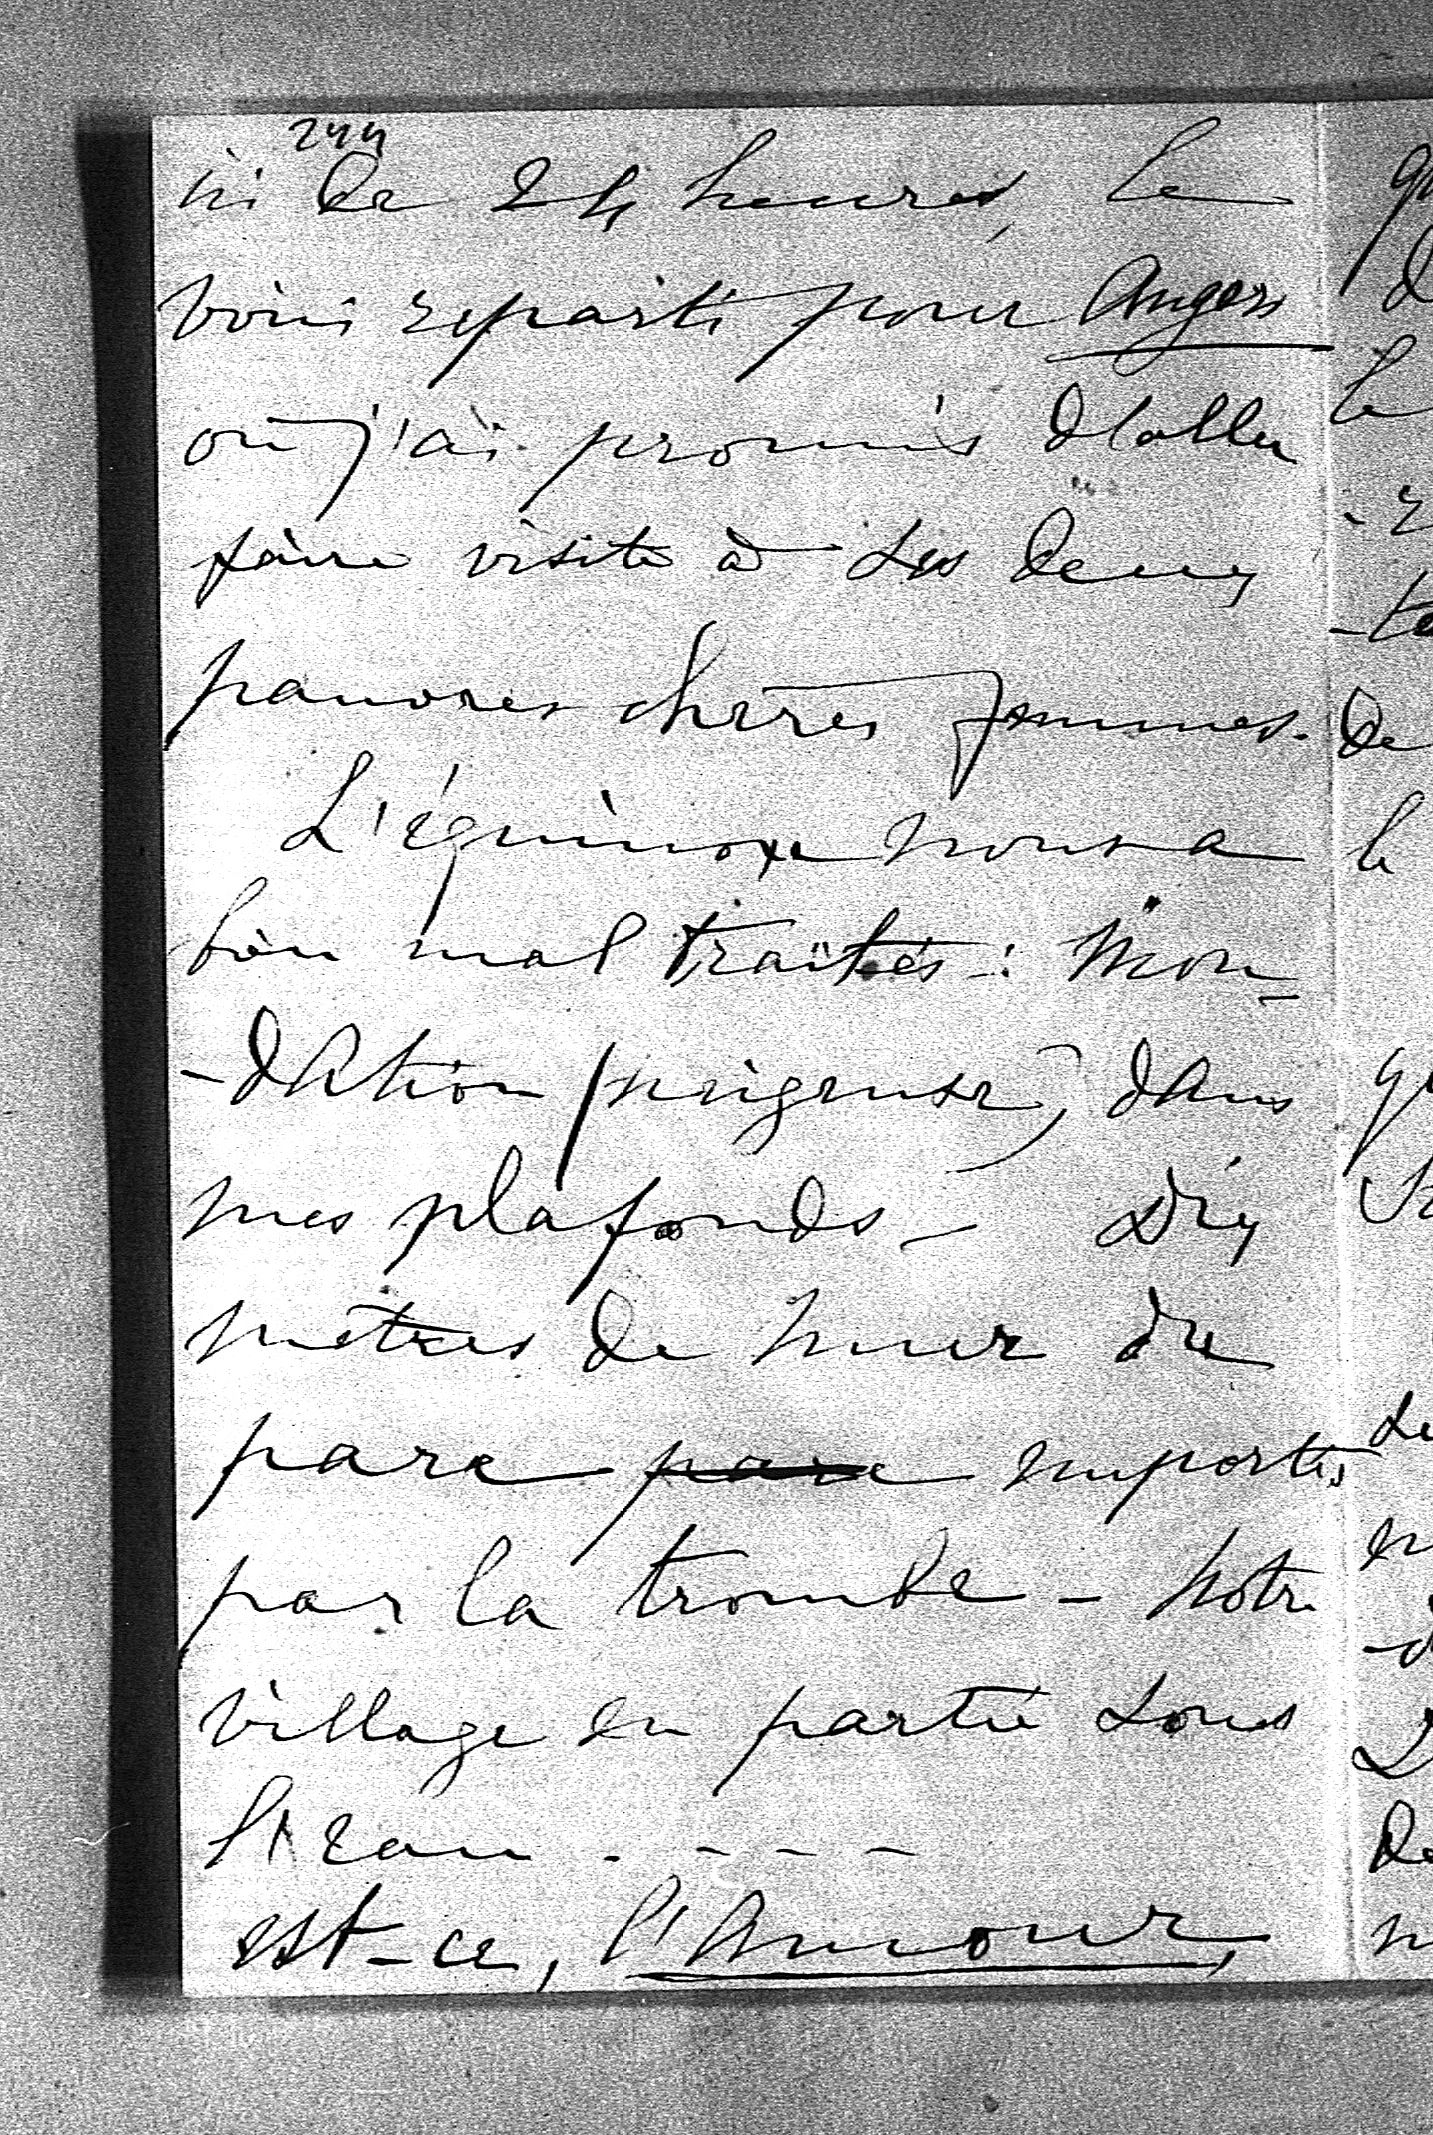 244
ni de 24 heures, le
voici reparti pour Angers
où j'ai promis d'aller
faire visite à ses deux
pauvres chères femmes.
L'équinoxe nous a
bien mal traités : Inon-
-dation neigeuse, dans
mes plafonds - Dix
mètres de mur du
parc parc emportés
par la trombe - Notre
village en partie sous
l'eau . - - -
est-ce, l'Amour,